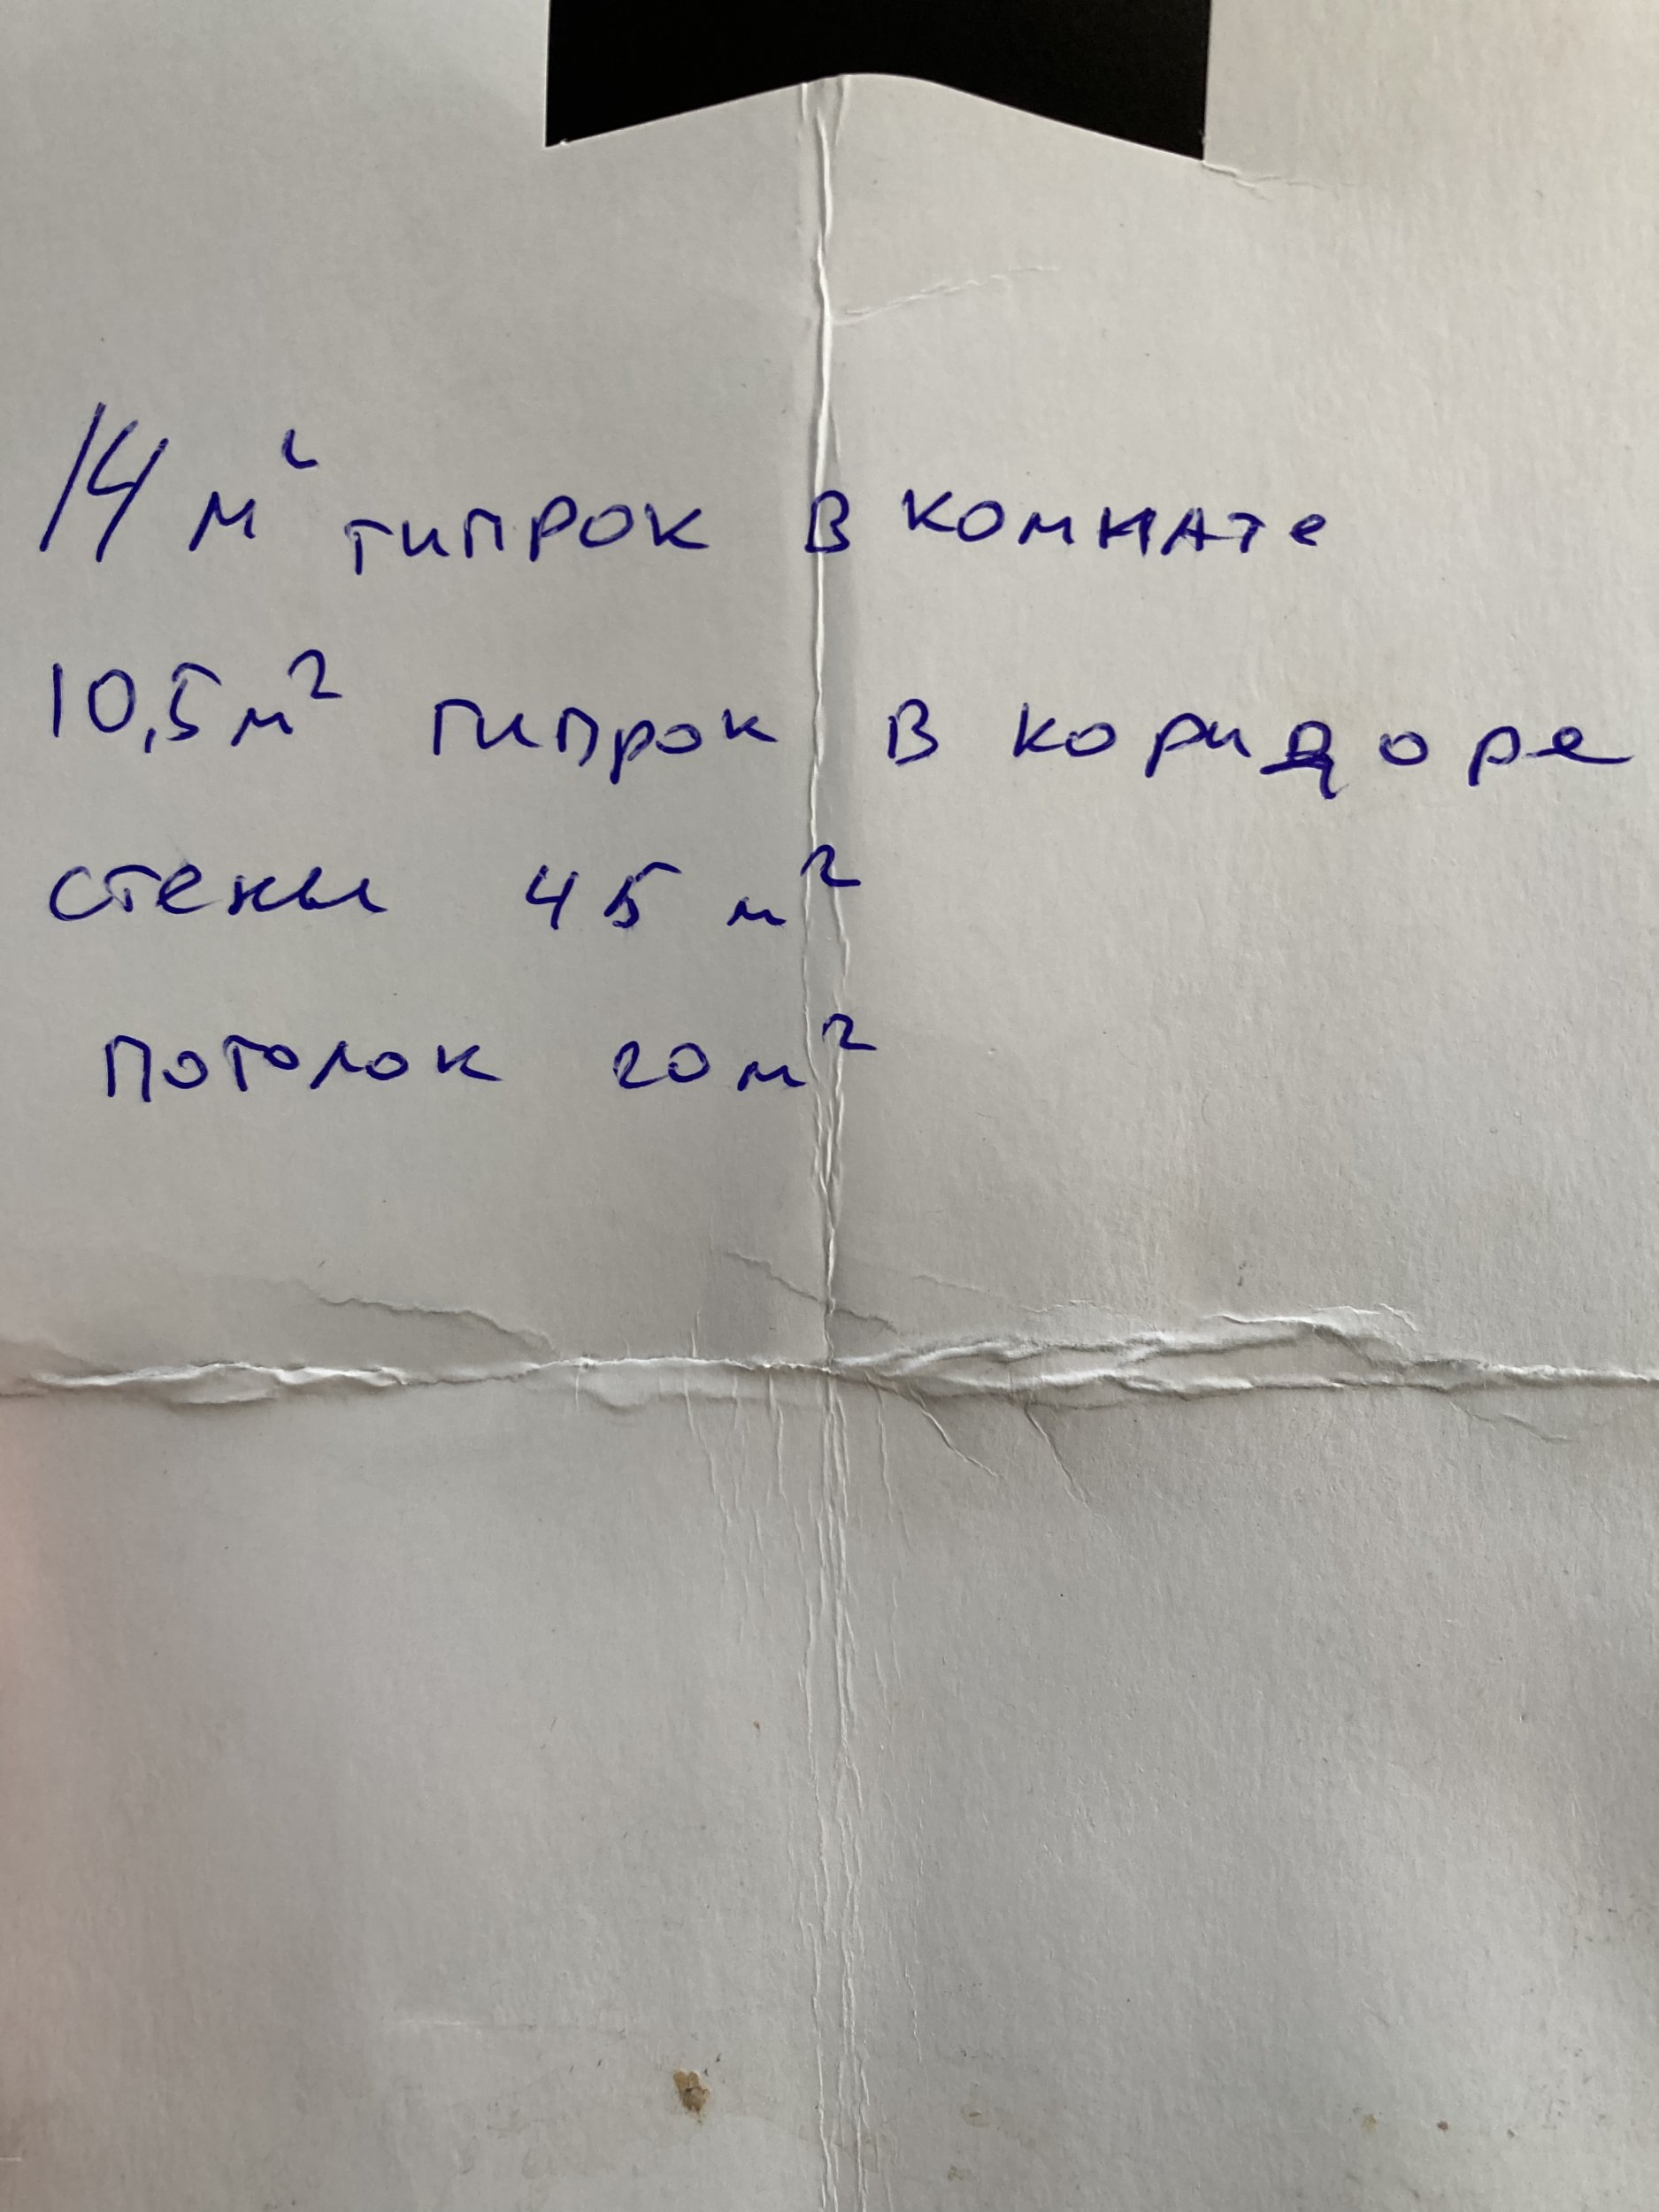 14 м² гипрок в комнате
10,5 м² гипрок в коридоре
стены 45 м²
потолок 20 м²